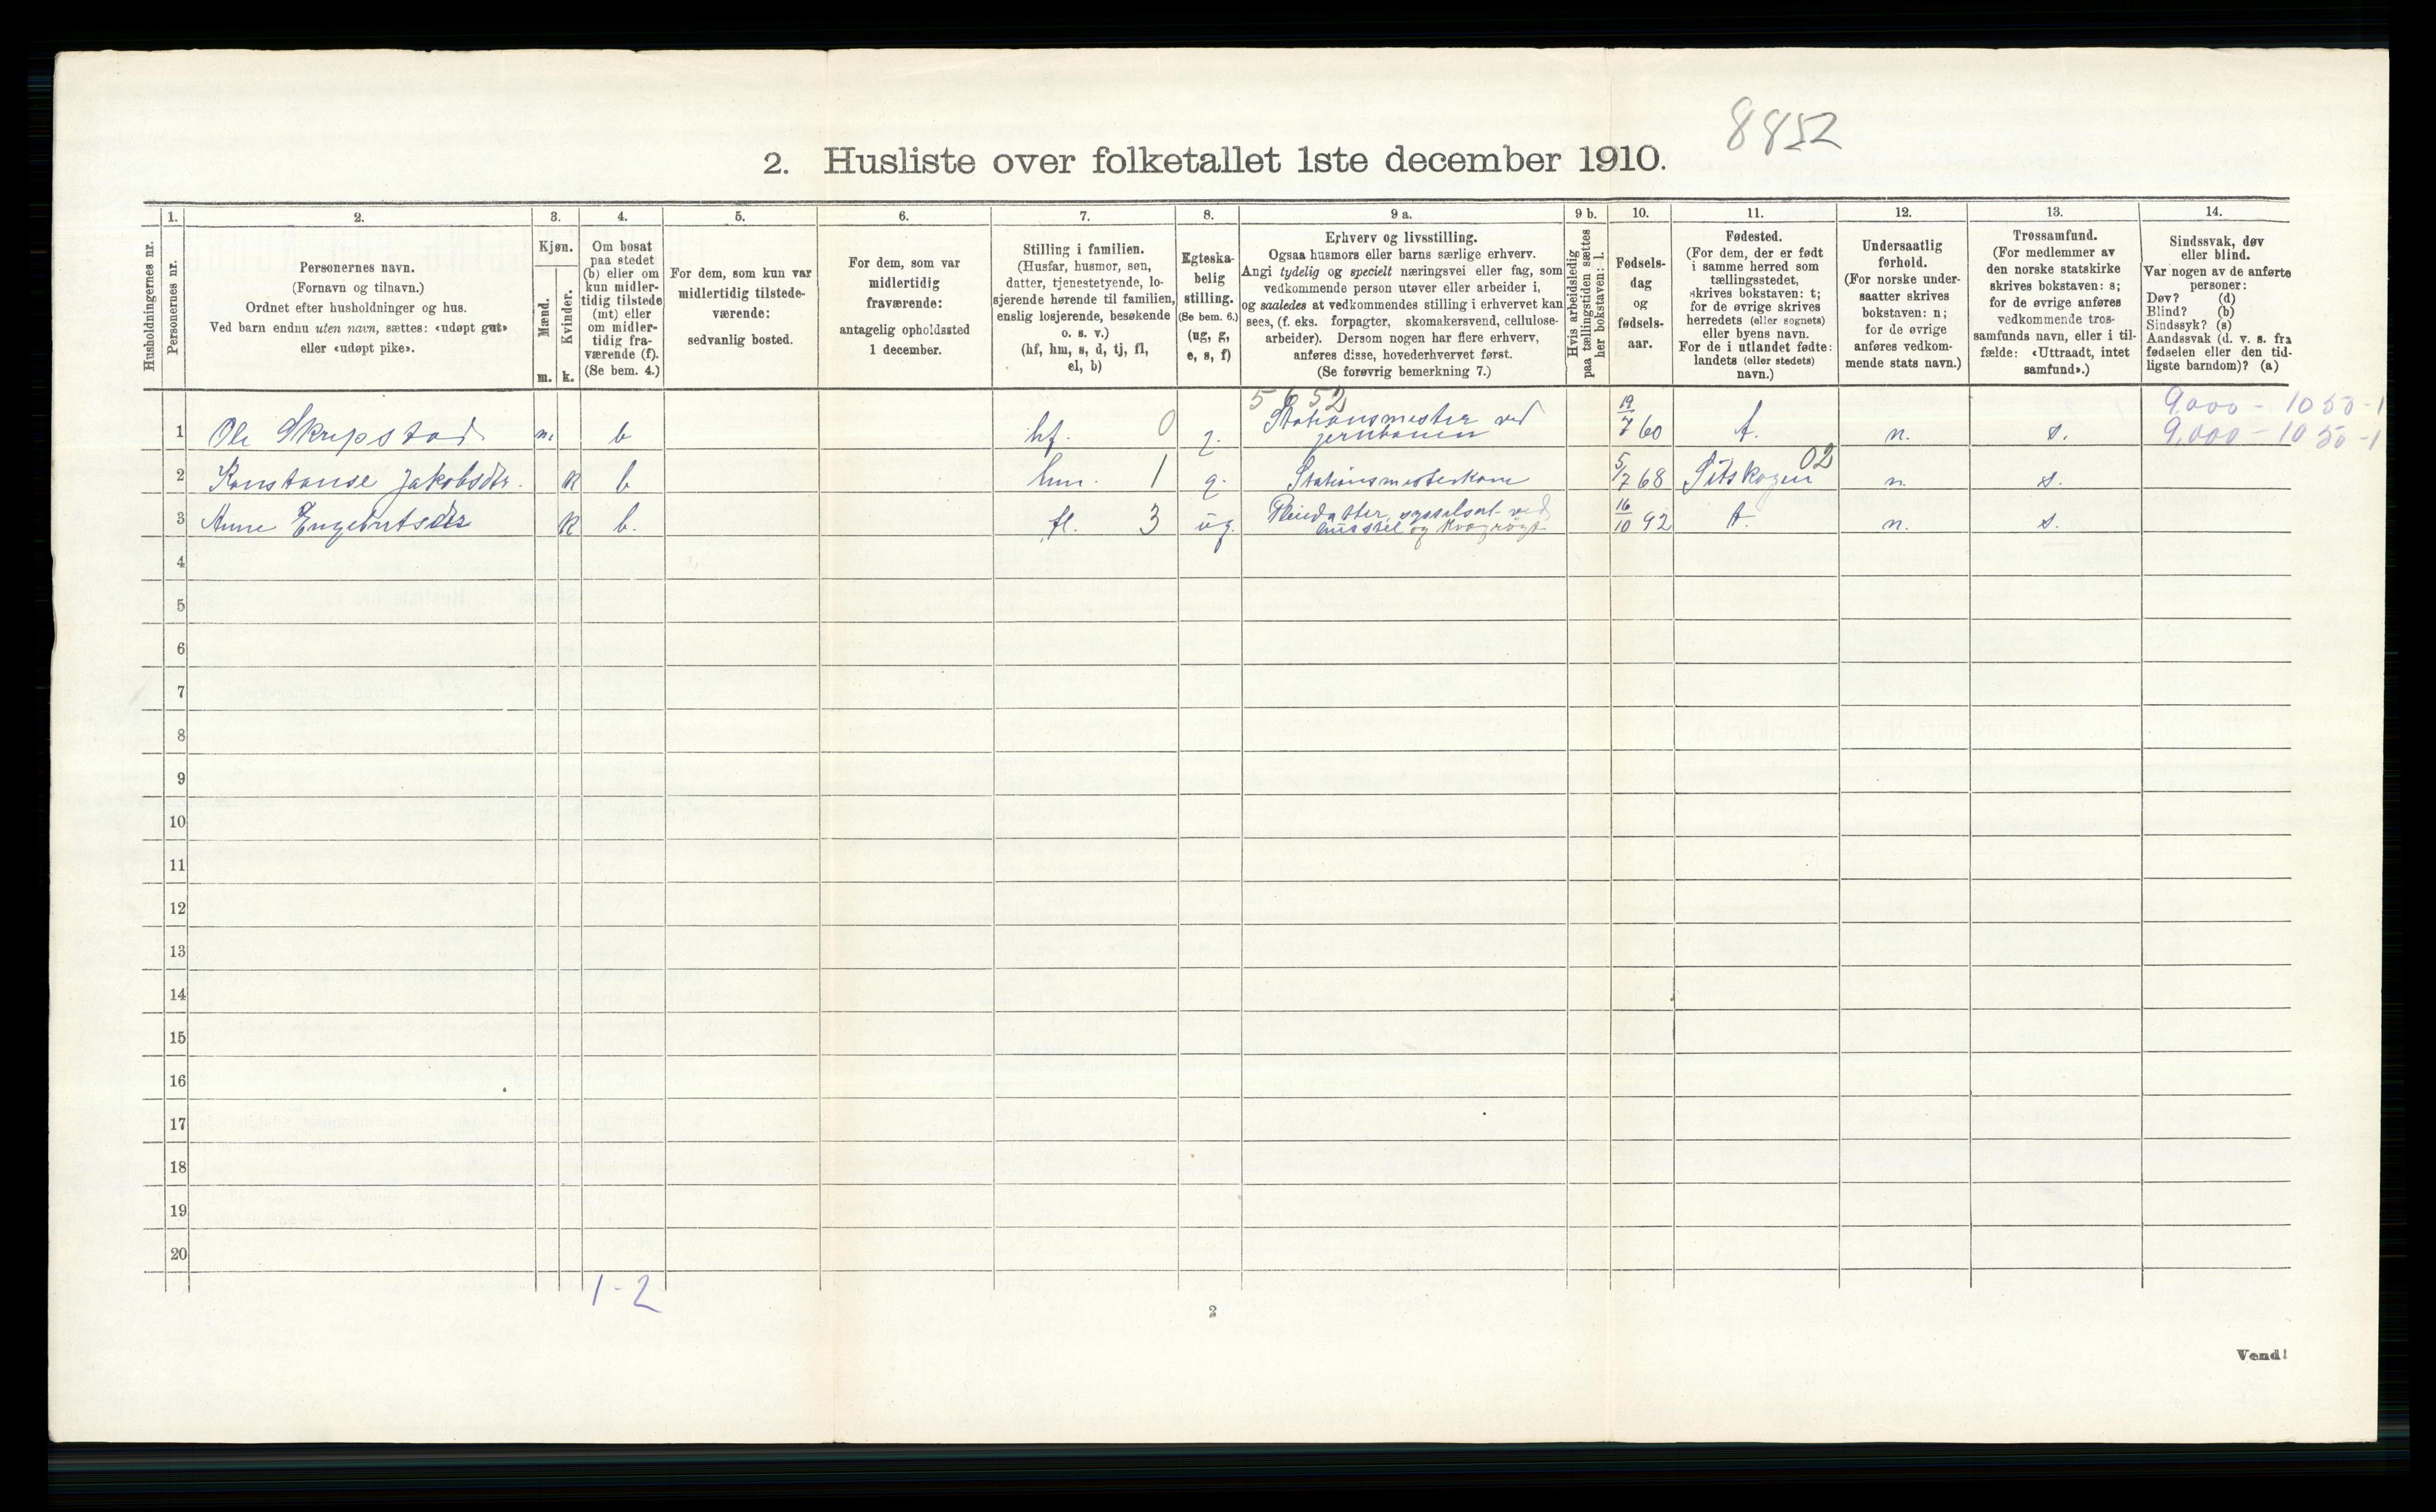 8852
2. Husliste over folketallet 1ste december 1910.
Husholdningernes nr.
1.
Personernes nr.
2.
Personernes navn.
(Fornavn og tilnavn.)
Ordnet efter husholdninger og hus.
Ved barn endnu uten navn, sættes: «udøpt gut»
eller «udøpt pike».
3.
Kjøn.
Mænd.
Kvinder.
m. k.
4.
Om bosat
paa stedet
(b) eller om
kun midler-
tidig tilstede
(mt) eller
om midler-
tidig fra-
værende (f).
(Se bem. 4.)
5.
For dem, som kun var
midlertidig tilstede-
værende:
sedvanlig bosted.
6.
For dem, som var
midlertidig
fraværende:
antagelig opholdssted
1 december.
7.
Stilling i familien.
(Husfar, husmor, søn,
datter, tjenestetyende, lo-
sjerende hørende til familien,
enslig losjerende, besøkende
o. s. v.)
(hf, hm, s, d, tj, fl,
el, b)
8.
Egteska-
belig
stilling.
(Se bem. 6.)
(ug, g,
e, s, f)
9 a.
Erhverv og livsstilling.
Ogsaa husmors eller barns særlige erhverv.
Angi tydelig og specielt næringsvei eller fag, som
vedkommende person utøver eller arbeider i,
og saaledes at vedkommendes stilling i erhvervet kan
sees, (f. eks. forpagter, skomakersvend, cellulose-
arbeider). Dersom nogen har flere erhverv,
anføres disse, hovederhvervet først.
(Se forøvrig bemerkning 7.)
9 b.
Hvis arbeidsledig
paa tællingstiden sættes
her bokstaven: l.
10.
Fødsels-
dag
og
fødsels-
aar.
11.
Fødested.
(For dem, der er født
i samme herred som
tællingsstedet,
skrives bokstaven: t;
for de øvrige skrives
herredets (eller sognets)
eller byens navn.
For de i utlandet fødte:
landets (eller stedets)
navn.)
12.
Undersaatlig
forhold.
(For norske under-
saatter skrives
bokstaven: n;
for de øvrige
anføres vedkom-
mende stats navn.)
13.
Trossamfund.
(For medlemmer av
den norske statskirke
skrives bokstaven: s;
for de øvrige anføres
vedkommende tros-
samfunds navn, eller i til-
fælde: «Uttraadt, intet
samfund».)
14.
Sindssvak, døv
eller blind.
Var nogen av de anførte
personer:
Døv? (d)
Blind? (b)
Sindssyk? (s)
Aandssvak (d. v. s. fra
fødselen eller den tid-
ligste barndom)? (a)
5652
9,000 - 1050-1
1 Ole Skrepstad m. b hf. 0 g. Stationsmester ved
jernbanen 19/7 60 t. n. s. 9,000 - 1050-1
2 Konstanse Jakobsdtr. k b hm. 1 g. Stationsmesterkone 5/7 68 Sitskogen 02 n. s.
3 Anne Engebretsdtr k b. fl. 3 ug. Pleiedatter, sysselsat ved
husstel og kvægrøgt 16/10 92 t. n. s.
4
5
6
7
8
9
10
11
12
13
14
15
16
17
18
19
20
1-2
2
Vend!